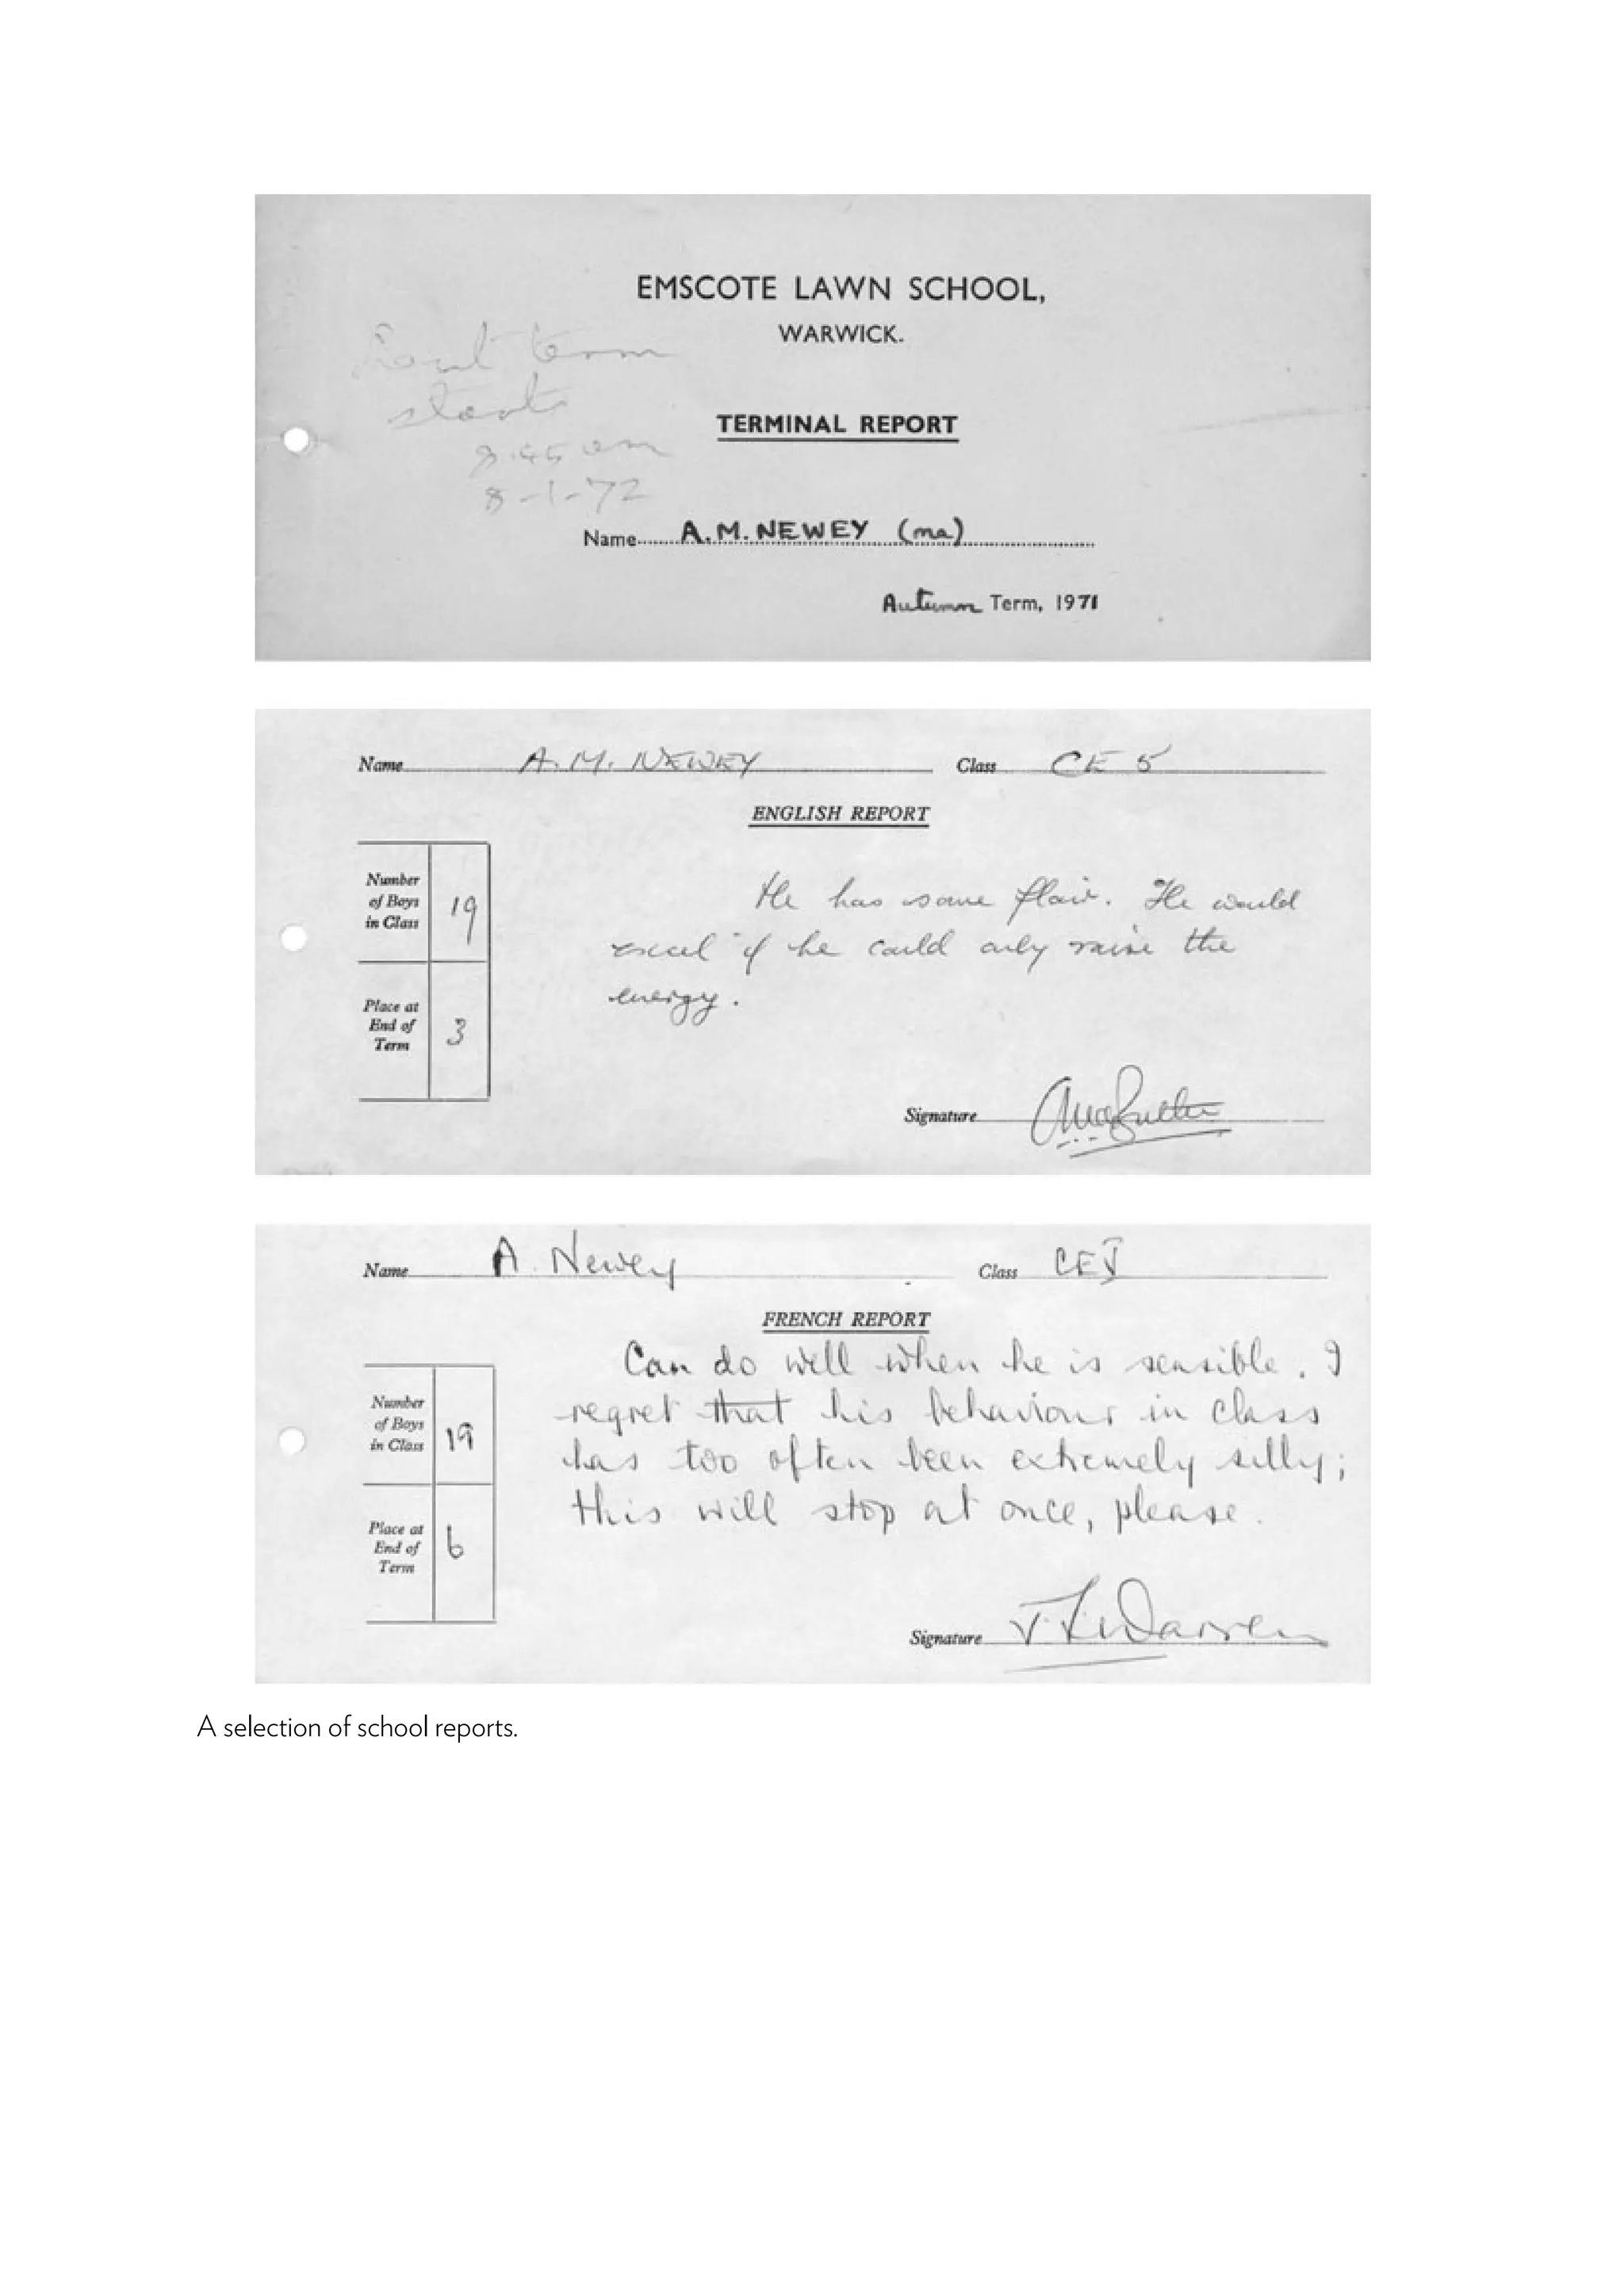 EMSCOTE LAWN SCHOOL,
WARWICK.
term
starts
8.45 am
8-1-72
TERMINAL REPORT
Name A.M. NEWEY (ma)
Autumn Term, 1971
Name A.M. NEWEY Class CE 5
ENGLISH REPORT
Number
of Boys
in Class
19
He has some flair. He would
excel if he could only raise the
energy.
Place at
End of
Term
3
Signature
Name A. Newey Class CE5
FRENCH REPORT
Can do well when he is sensible. I
regret that his behaviour in class
has too often been extremely silly;
this will stop at once, please.
Number
of Boys
in Class
19
Place at
End of
Term
6
Signature Warren
A selection of school reports.